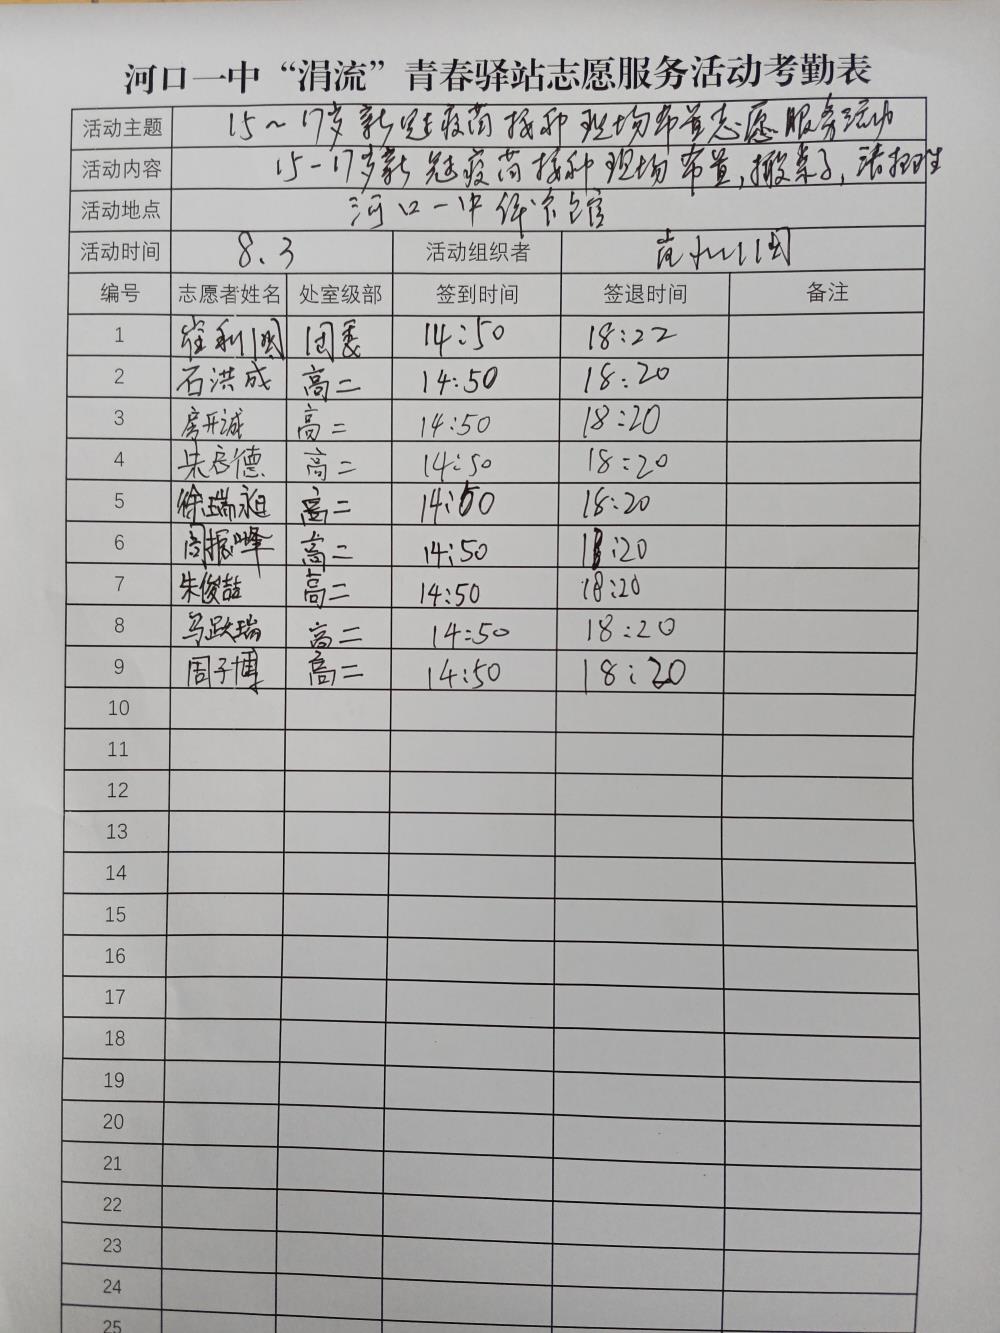 河口一中“涓流”青春驿站志愿服务活动考勤表
活动主题 15~17岁新冠疫苗接种现场布置志愿服务活动
活动内容 15-17岁新冠疫苗接种现场布置,搬桌子,清扫卫生
活动地点 河口一中体育馆
活动时间 8.3 活动组织者
编号 志愿者姓名 处室级部 签到时间 签退时间 备注
1 团委 14:50 18:22
2 石洪成 高二 14:50 18:20
3 房开诚 高二 14:50 18:20
4 朱启德 高二 14:50 18:20
5 徐瑞昶 高二 14:50 18:20
6 周振峰 高二 14:50 18:20
7 朱俊喆 高二 14:50 18:20
8 马跃瑞 高二 14:50 18:20
9 周子博 高二 14:50 18:20
10
11
12
13
14
15
16
17
18
19
20
21
22
23
24
25